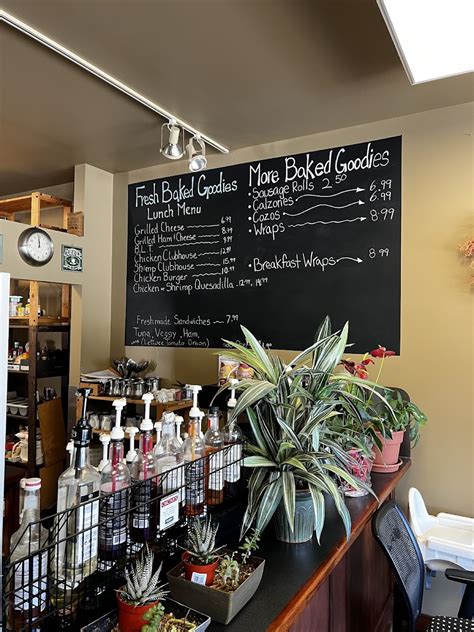 Fresh Baked Goodies
Lunch Menu
Grilled Cheese 6.99
Grilled Ham & Cheese 7.99
B.L.T.
Chicken Clubhouse 12.99
Shrimp Clubhouse 15.99
Chicken Burger
Chicken or Shrimp Quesadilla
Freshmade Sandwiches 7.99
Tuna, Veggy, Ham,
(Lettuce Tomato Onion)
More Baked Goodies
•Sausage Rolls 2.50
•Calzones 6.99
•Cazos 6.99
•Wraps 8.99
•Breakfast Wraps 8.99